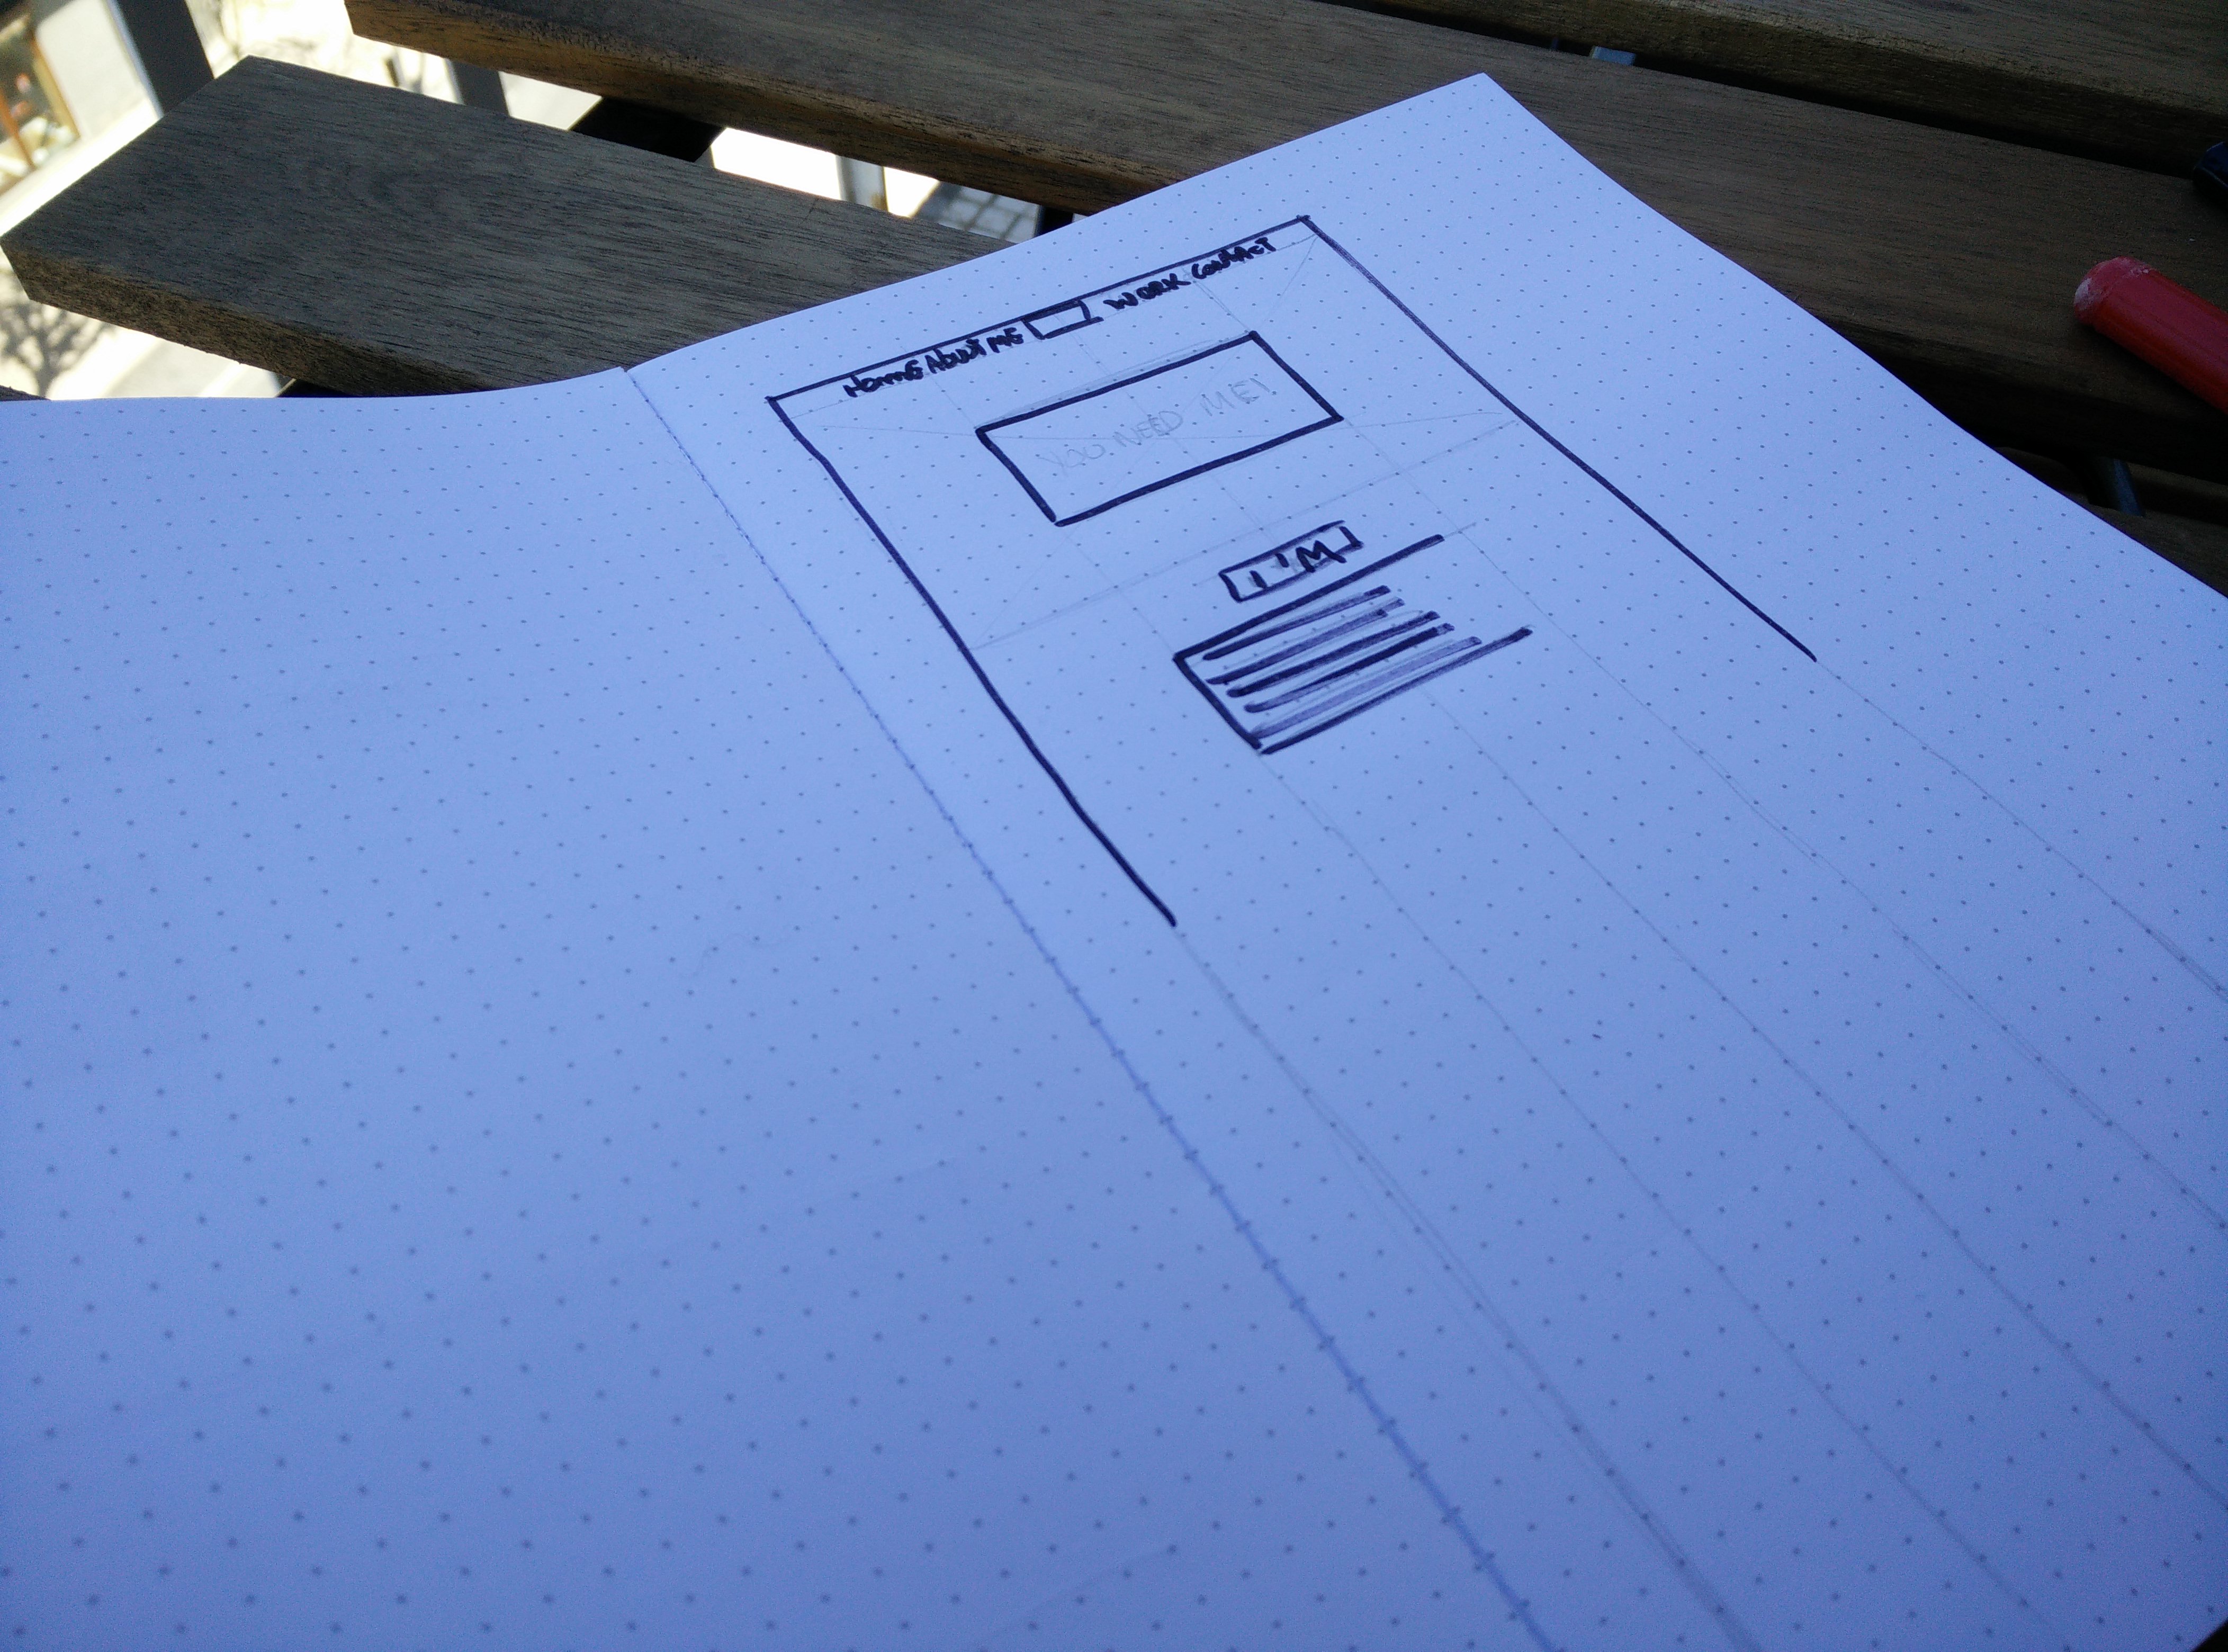 Home About ME WORK CONTACT
YOU NEED ME!
I'M